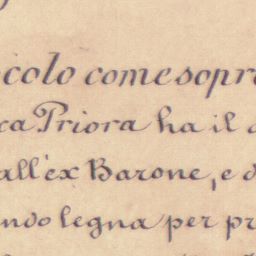 icolo come sopr
ca Priora ha il
all'ex Barone, e d
ndo legna per pr